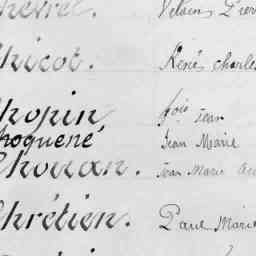 hevret. Vilain Pierr
Chicot. René charles
Chopin fois jean
Choquené Jean Marie
Chouan. jean Marie au
Chrétien. Paul Marie